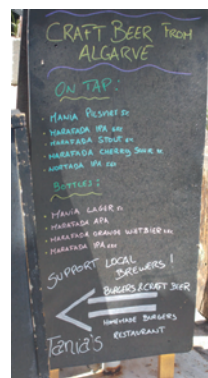 CRAFT BEER FROM
ALGARVE
ON TAP:
- MANIA PILSNER
- MARAFADA IPA
- MARAFADA STOUT
- MARAFADA CHERRY SOUR
- NORTADA IPA
BOTTLES:
- MANIA LAGER
- MARAFADA APA
- MARAFADA ORANGE WITBIER
- MARAFADA IPA
SUPPORT LOCAL
BREWERS!
BURGERS & CRAFT BEER
HOMEMADE BURGERS
RESTAURANT
Tania's